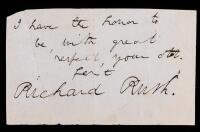 I have the honor to
be, with great
respect, your obt.
servt
Richard Rush.